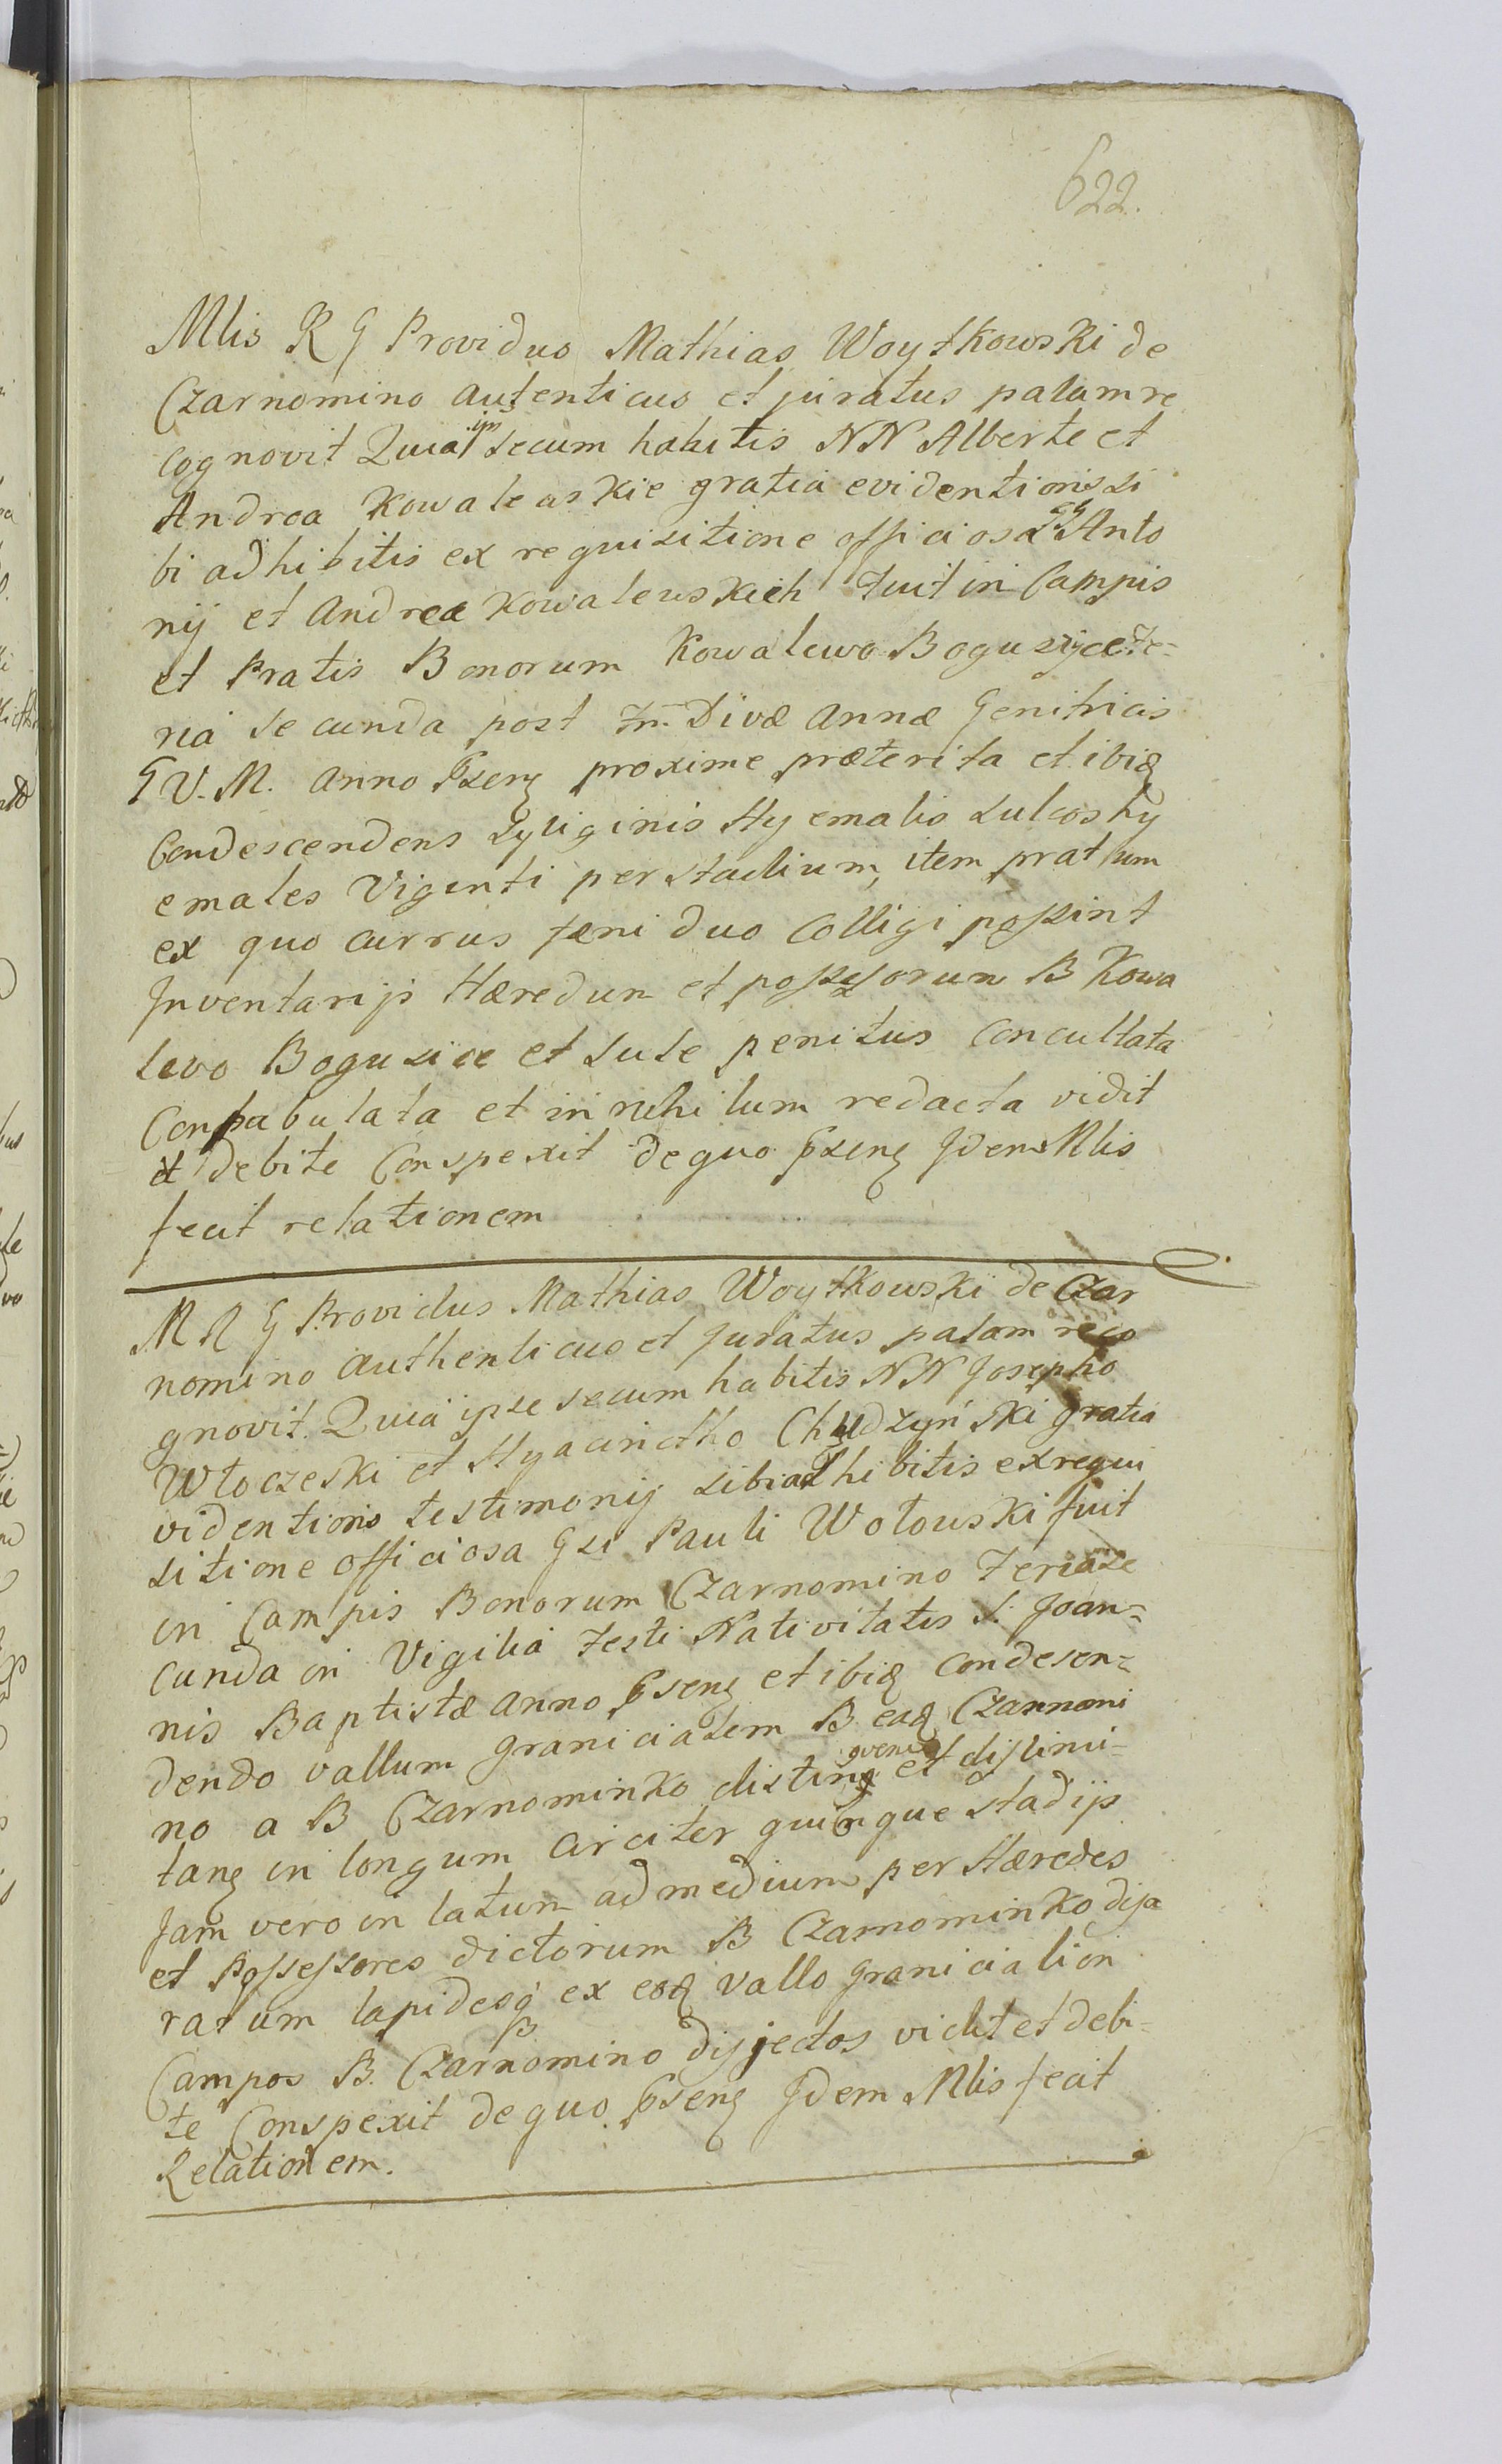 622.
Mlis R G Providus Mathias Woytkowski de
Czarnomino autenticus et juratus palam re
cognovit Quia ips secum habitis NN Alberte et
Andrea Kowaleaskie gratia evidentionis si
bi adhibitis ex requisitione officiosa GG Anto
nij et Andreæ Kowalewskich fuit in Campis
et Pratis Bonorum Kowalewo Bogusijce Fe=
ria secunda post Fm Divæ Annæ Genitricis
G V. M. Anno Psenz proxime præterita et ibiq
Condescendens Syliginis Hyemalis sulcos hy
emales Viginti per stadium, item pratum
ex quo currus fæni duo Colligi possint
Inventarijs Hæredum et possessorum B Kowa
lewo Bogusice et suse penitus Concultata
Conpabulata et in nihilum redacta vidit
et debite Conspexit de quo psenz Idem Mlis
fecit relationem
M R G Providus Mathias Woytkowski de Czar
nomino authenticus et Juratus palam reco
gnovit. Quia ipse secum habitis NN Josepho
Włoczeski et Hyacinctho Chudzyński gratia
videntionis testimonij sibi adhibitis ex requi
sitione officiosa Gsi Pauli Wołowski fuit
in Campis Bonorum Czarnomino Feria se
cunda in Vigilia Festi Nativitatis S. Joan=
nis Baptistæ Anno Psenz et ibiq condesen=
dendo vallum graniciatem B. eaq Czarnomi
no a B Czarnominko disting guens et disimi=
tanz in longum circiter quinque stadijs
Jam vero in latum ad medium per Hæredes
et Possessores dictorum B Czarnominko dispa
ratum lapidesq ex eoq vallo graniciali on
Campos B. Czarnomino disjectos vidit et debi=
te Conspexit de quo psenz Idem Mlis fecit
Relationem.